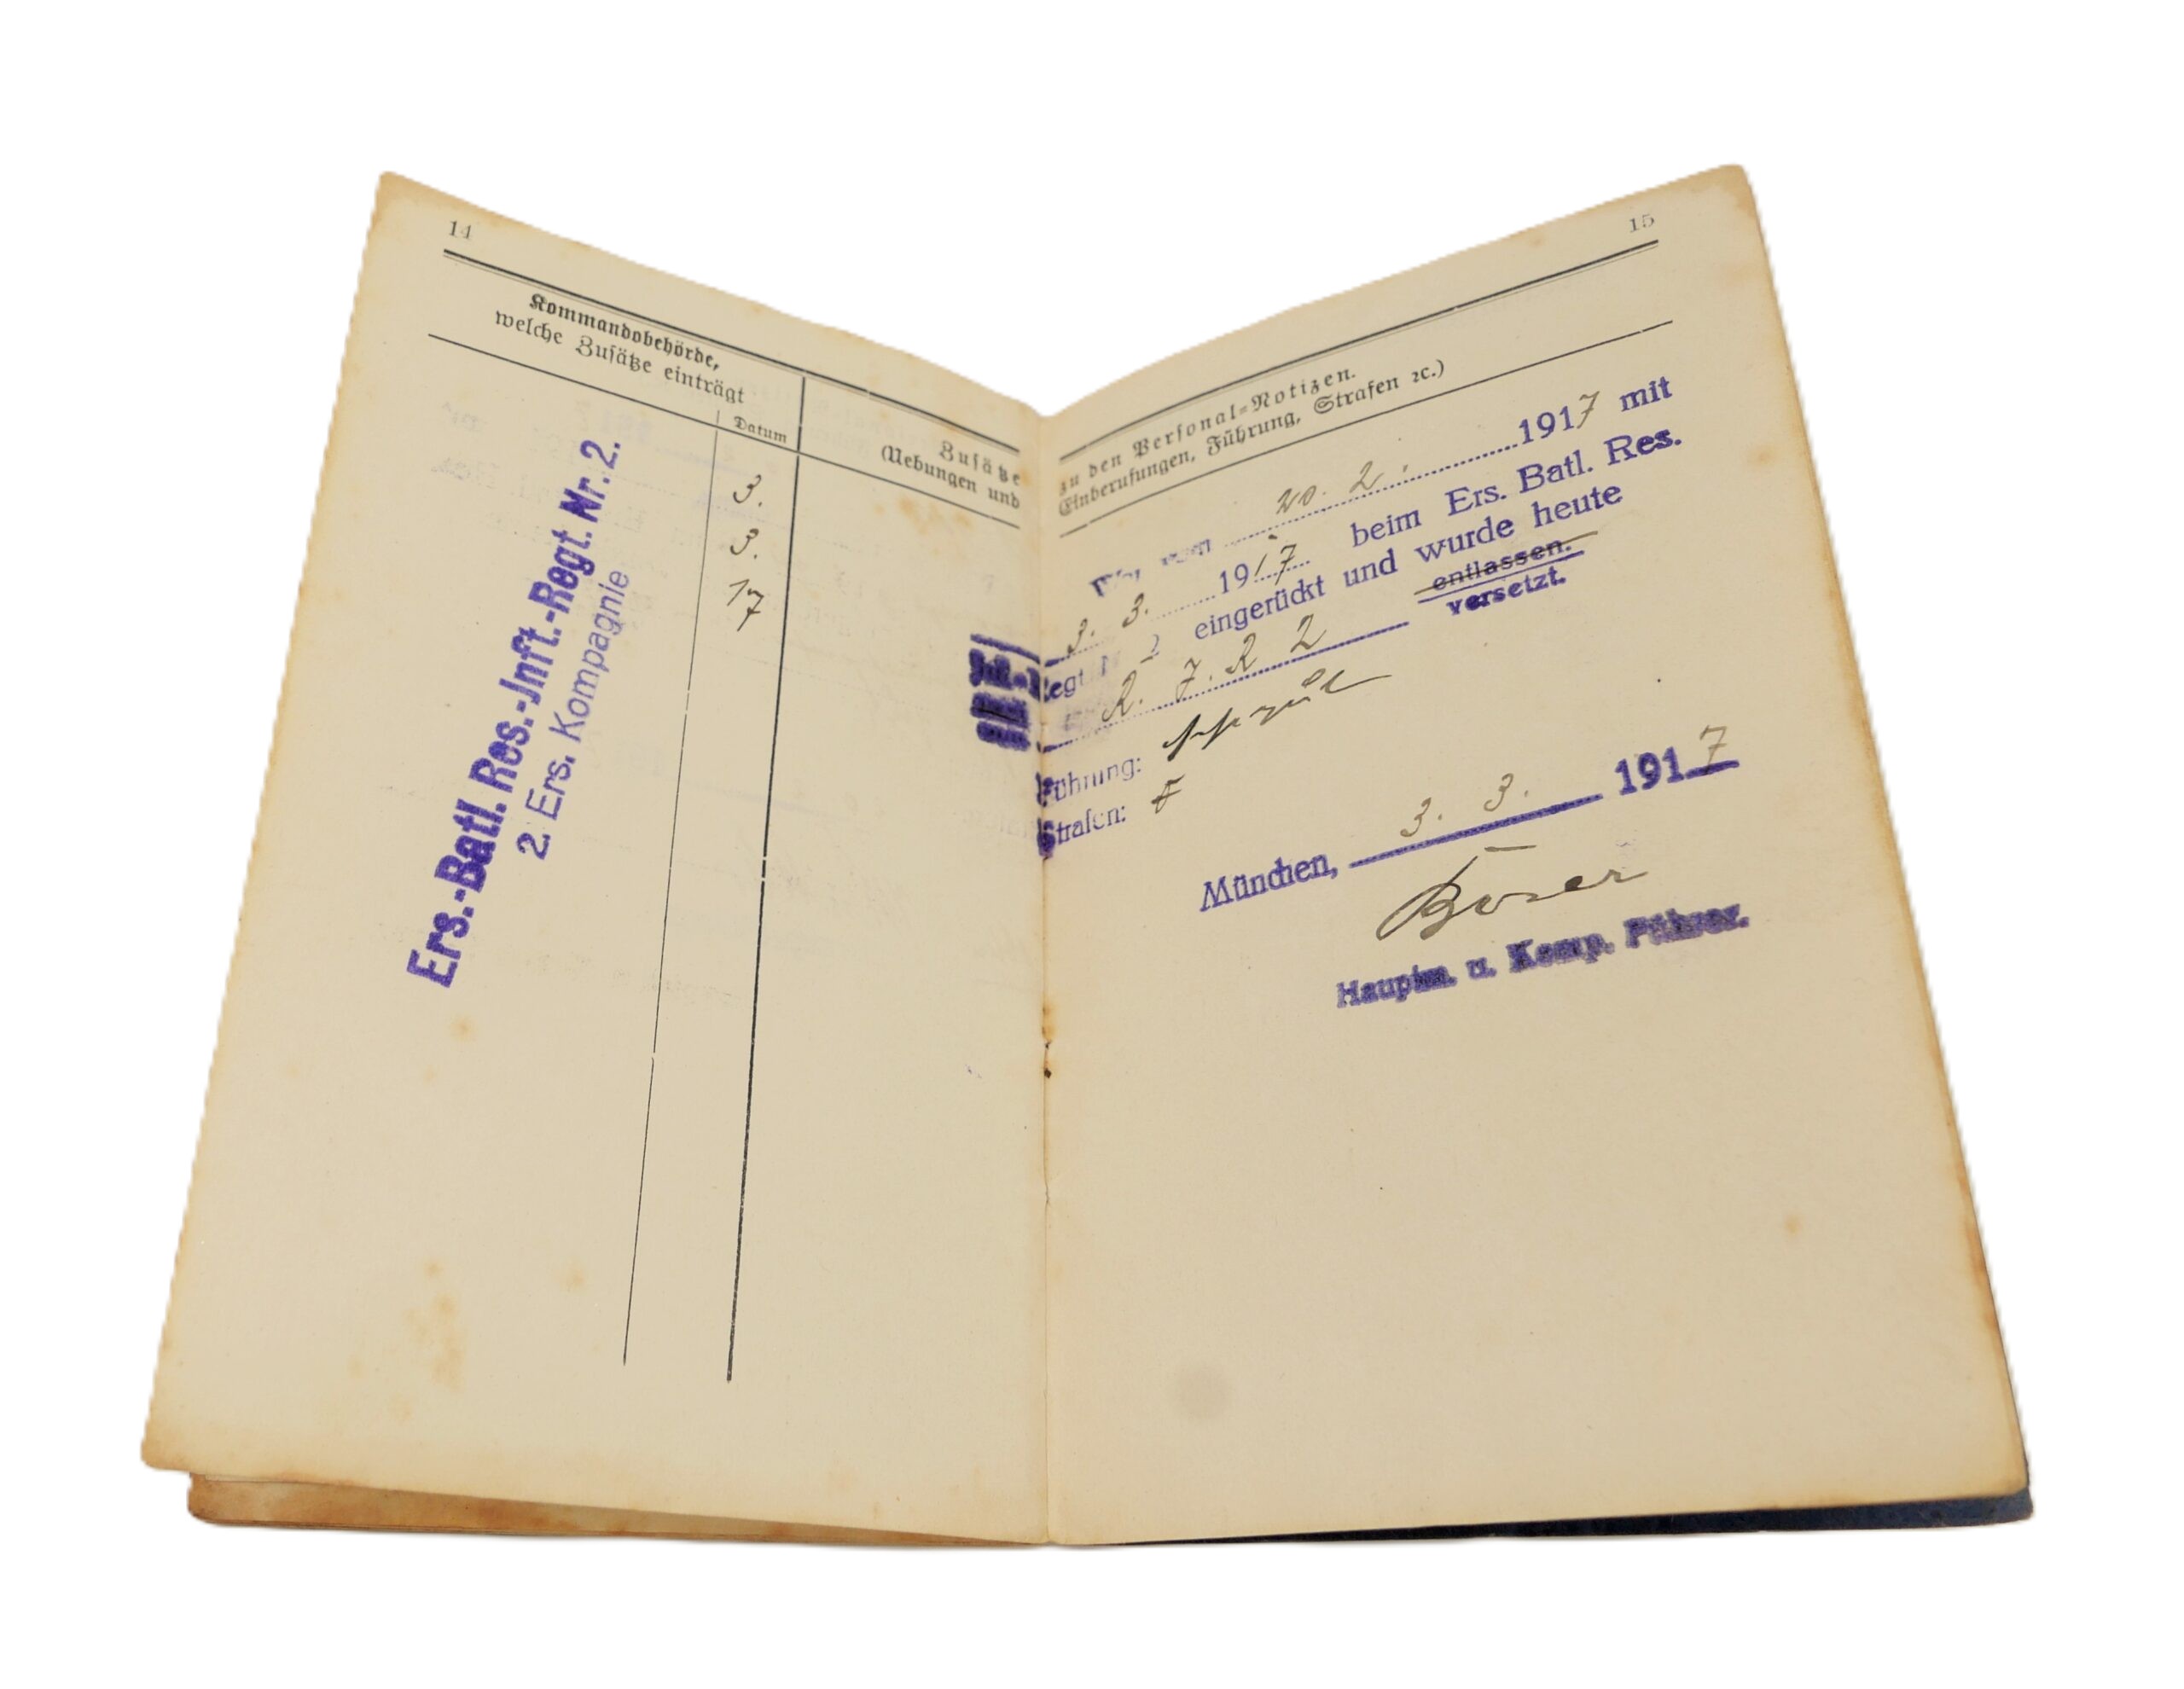 14
Kommandobehörde,
welche Zusätze einträgt
Datum
Zusätze
(Uebungen und
3.
3.
17
Ers.-Batl. Res.-Jnft.-Regt. Nr. 2.
2. Ers. Kompagnie
15
zu den Personal-Notizen.
Einberufungen, Führung, Strafen ꝛc.)
20. 2. 1917 mit
3. 3. 1917 beim Ers. Batl. Res.
Regt 2 eingerückt und wurde heute
entlassen.
R. J. R 2 versetzt.
Führung:
Strafen:
München, 3. 3. 1917
Hauptm. u. Komp. Führer.